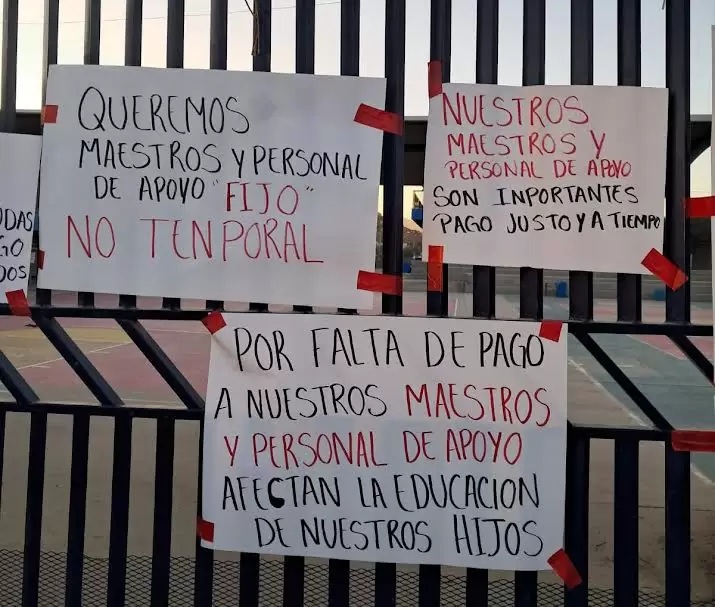 QUEREMOS
MAESTROS Y PERSONAL
DE APOYO "FIJO"
NO TENPORAL
NUESTROS
MAESTROS Y
PERSONAL DE APOYO
SON INPORTANTES
PAGO JUSTO Y A TIEMPO
POR FALTA DE PAGO
A NUESTROS MAESTROS
Y PERSONAL DE APOYO
AFECTAN LA EDUCACION
DE NUESTROS HIJOS